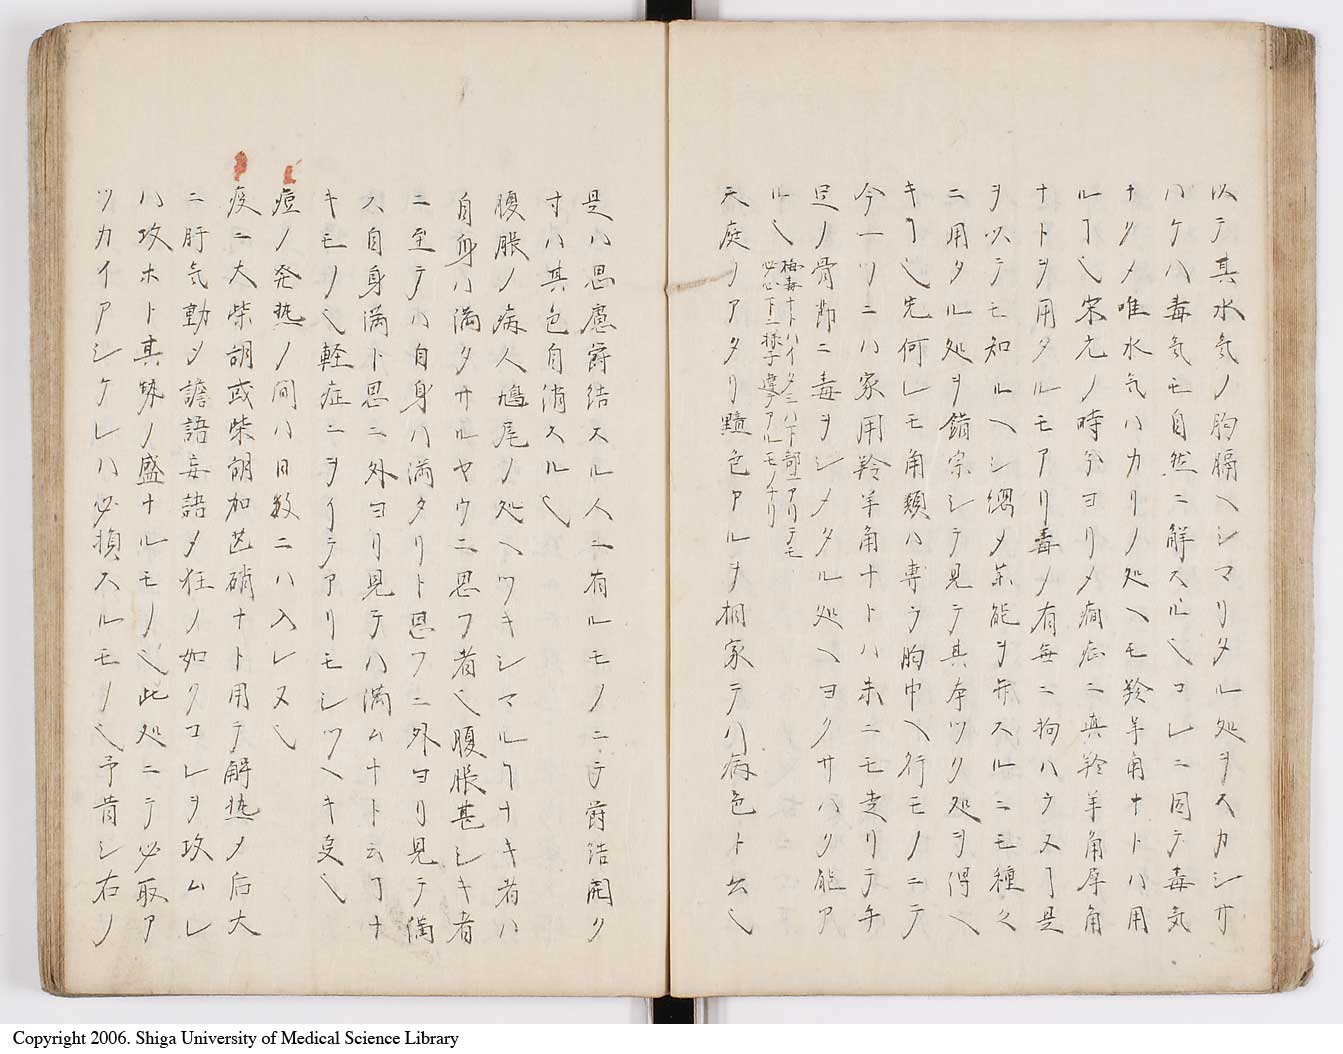 以テ其水気ノ胸膈ヘシマリタル処ヲスカシサ
ハケハ毒気モ自然ニ解スル也コレニ因テ毒気
ナクメ唯水気ハカリノ処ヘモ羚羊角ナトハ用
ルヿ也宋元ノ時分ヨリメ癇症ニ真羚羊角犀角
ナトヲ用タルモアリ毒ノ有無ニ拘ハラスヿ是
ヲ以テモ知ルヘシ メ薬能ヲ弁スルニモ種々
ニ用タル処ヲ錯宗シテ見テ其本ツク処ヲ得ヘ
キヿ也先何レモ角類ハ専ラ胸中ヘ行モノニテ
今一ツニハ家用羚羊角ナトハ未ニモ走リテ手
足ノ骨節ニ毒ヲシメタル処ヘヨクサハク能ア
ル也 梅毒ナトハイタミハ下部ニアリテモ
必心下ニ様子違アルモノナリ
天庭ノアタリ黯色アルヲ相家テハ病色ト云也
是ハ思慮欝結スル人ニ有ルモノニテ欝結開ク
寸ハ其色自消スル也
腹脹ノ病人鳩尾ノ処ヘツキシマルヿナキ者ハ
自身ハ満タサルヤウニ思フ者也腹脹甚シキ者
ニ至テハ自身ハ満タリト思フニ外ヨリ見テ満
ス自身満ト思ニ外ヨリ見テハ満ムナト云ヿナ
キモノ也軽症ニヲイテアリモシツヘキ叓也
痘ノ発熱ノ間ハ日数ニハ入レヌ也
疫ニ大柴胡或柴胡加芒硝ナト用テ解熱メ后大
ニ肝気動メ譫語妄語メ狂ノ如クコレヲ攻ムレ
ハ攻ホト其勢ノ盛ナルモノ也此処ニテ必取ア
ツカイアシケレハ必損スルモノ也予昔シ右ノ
Copyright 2006. Shiga University of Medical Science Library